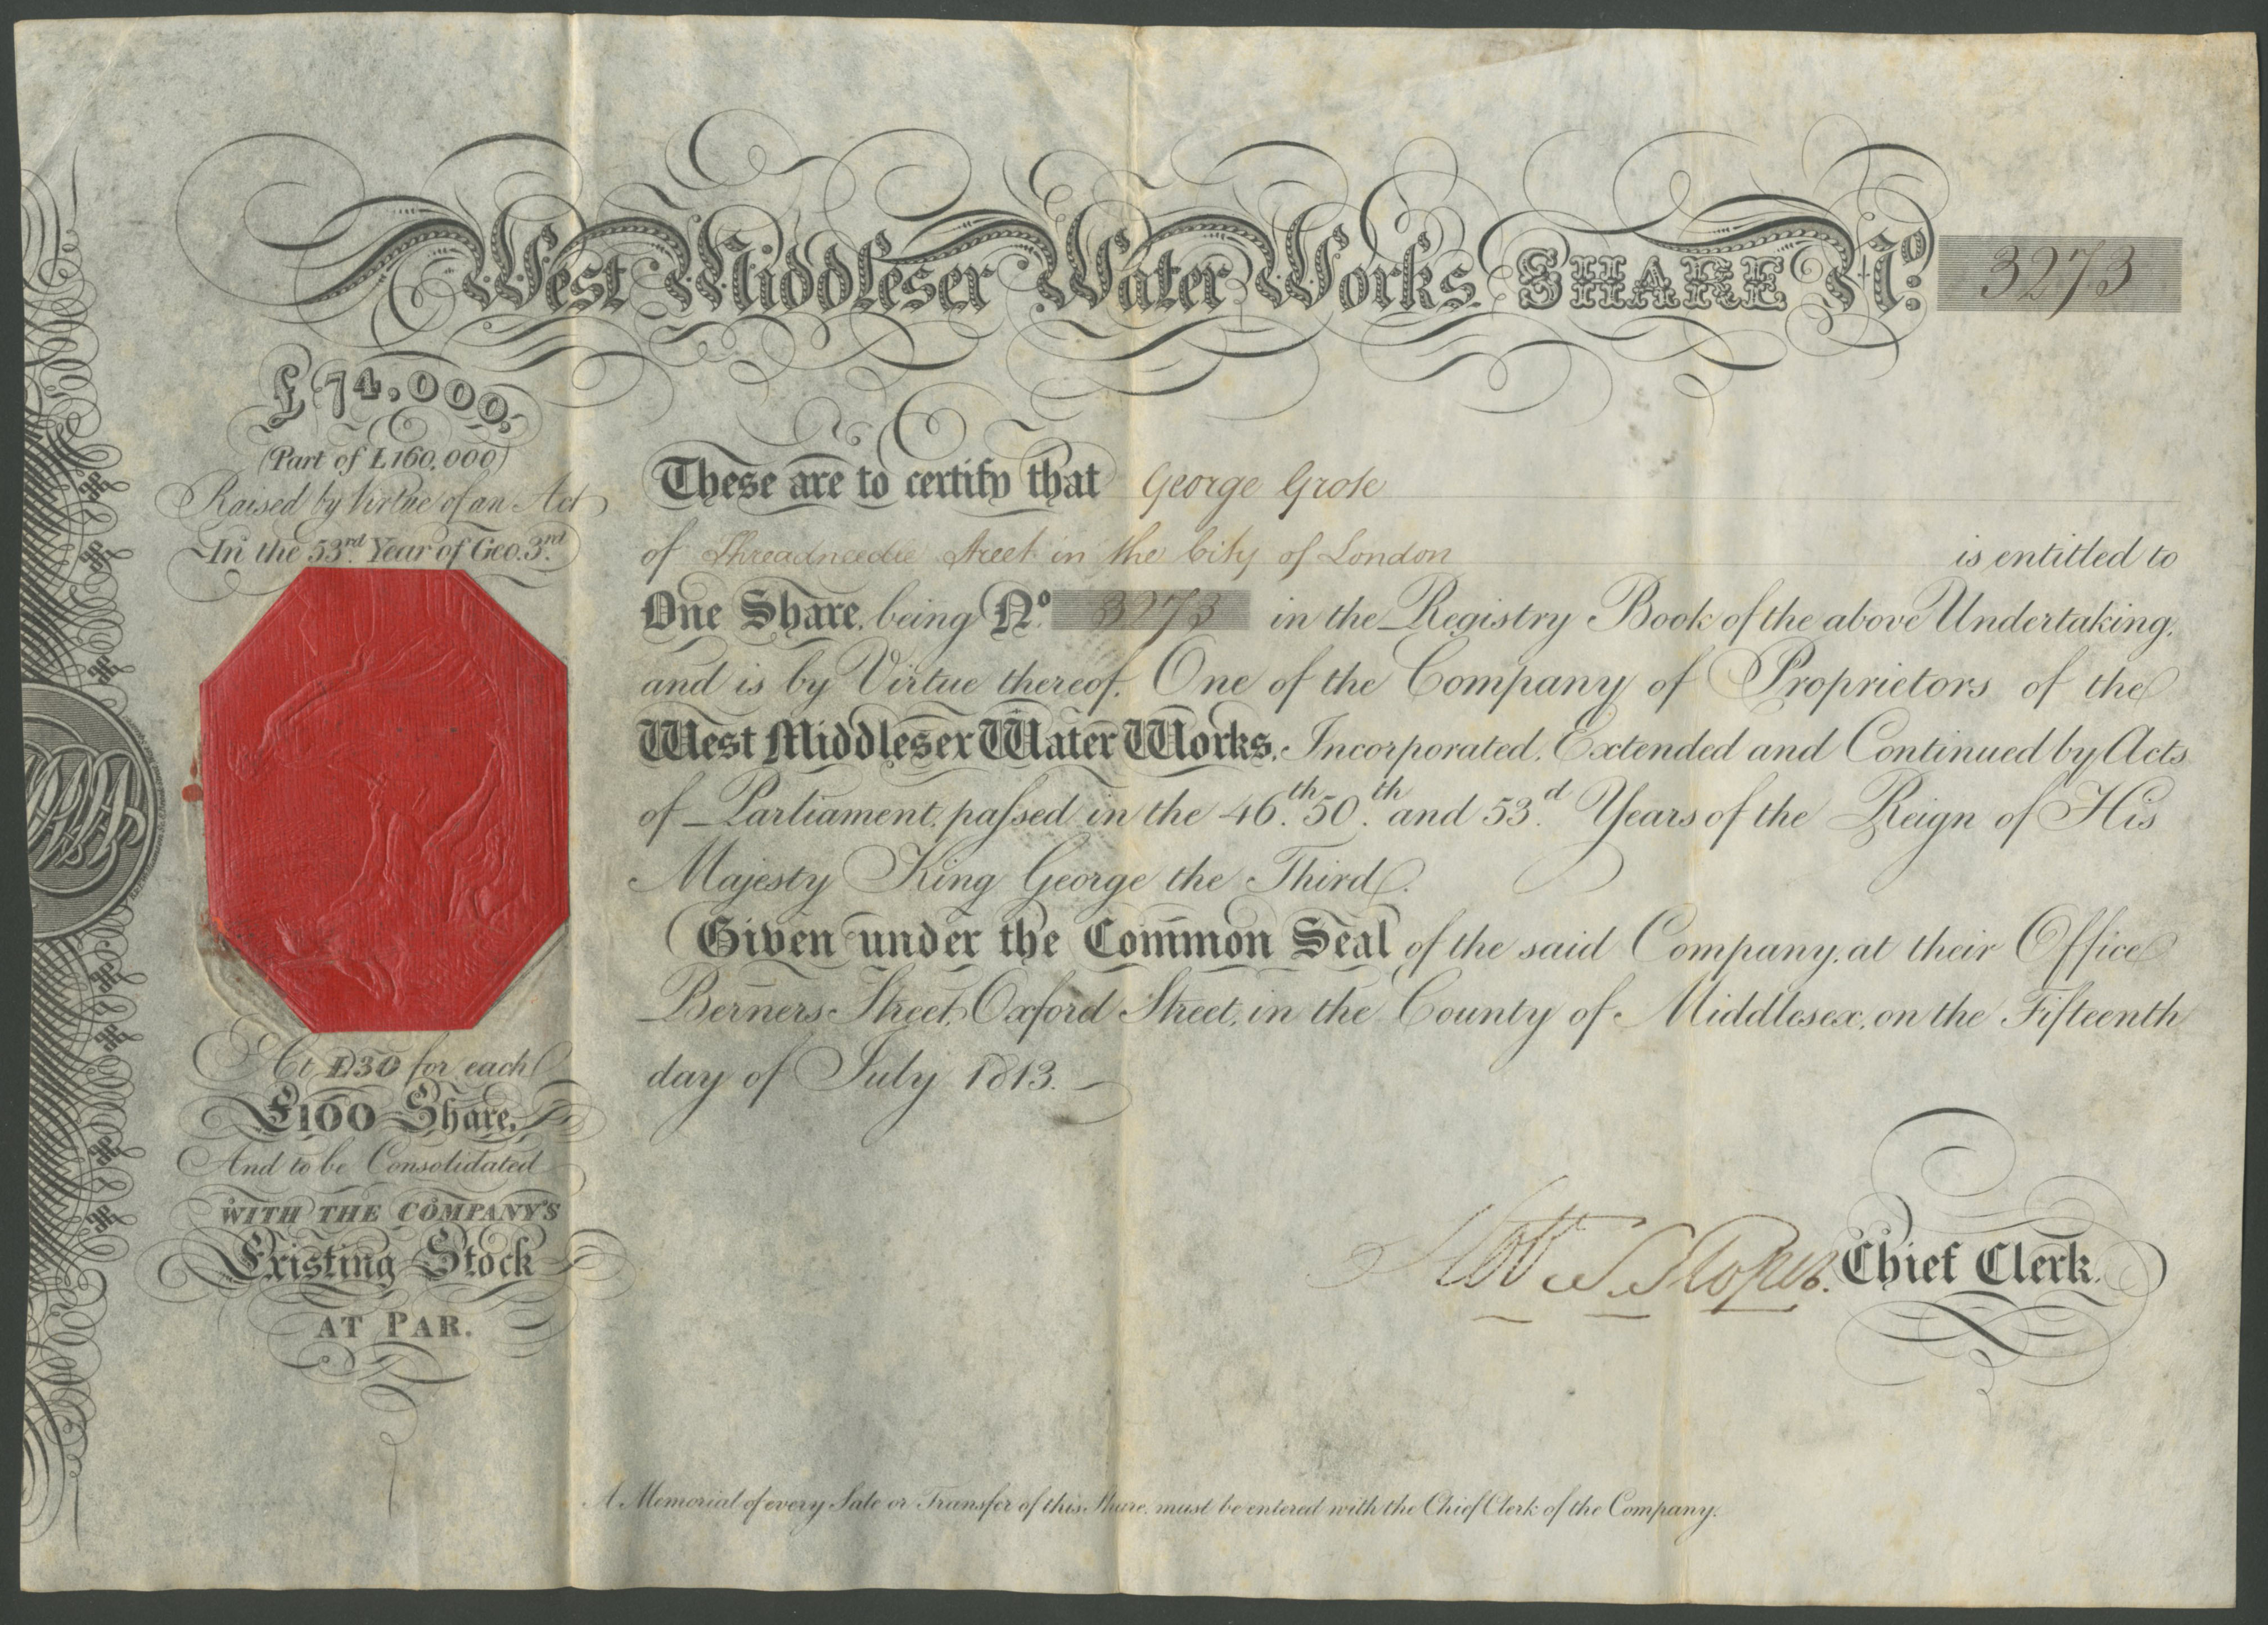 West Middlesex Water Works. SHARE No. 3273
£74,000,
(Part of £160,000)
Raised by Virtue of an Act
In the 53rd. Year of Geo. 3rd.
At £30 for each
£100 Share,
And to be Consolidated
WITH THE COMPANY'S
Existing Stock
AT PAR.
These are to certify that George Grose
of Threadneedle Street in the City of London is entitled to
One Share, being No. 3273 in the Registry Book of the above Undertaking,
and is by Virtue thereof, One of the Company of Proprietors of the
West Middlesex Water Works, Incorporated, Extended and Continued by Acts
of Parliament, paſsed in the 46th. 50th. and 53d. Years of the Reign of His
Majesty King George the Third.
Given under the Common Seal of the said Company, at their Office
Berners Street, Oxford Street, in the County of Middlesex, on the Fifteenth
day of July 1813.
Chief Clerk.
A Memorial of every Sale or Transfer of this Share, must be entered with the Chief Clerk of the Company.